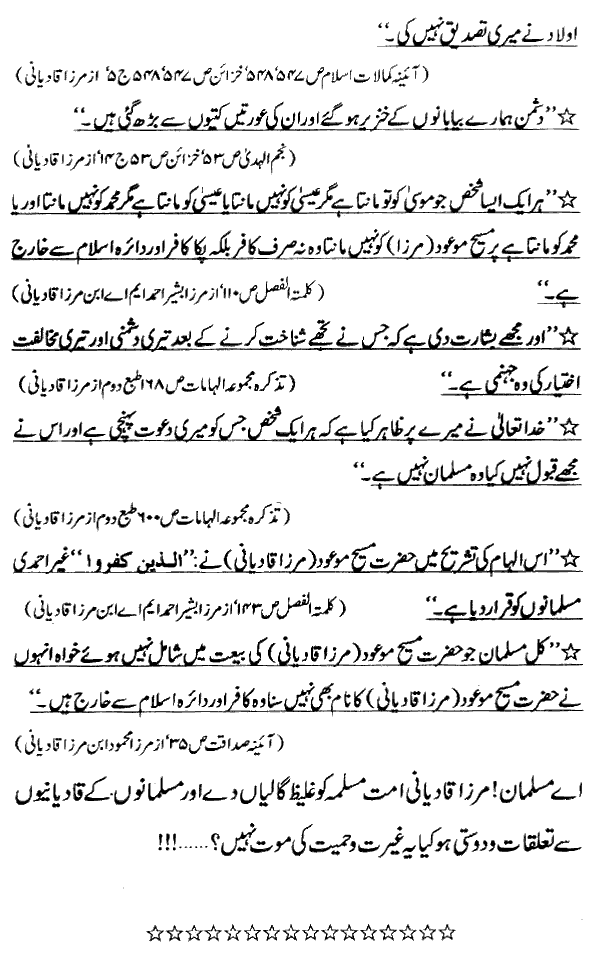 اولاد نے میری تصدیق نہیں کی۔‘‘
(آئینہ کمالات اسلام ص ۵۴۷‘ ۵۴۸‘ خزائن ص ۵۴۷‘ ۵۴۸ ج ۵‘ از مرزا قادیانی)
☆’’دشمن ہمارے بیابانوں کے خنزیر ہوگئے اور ان کی عورتیں کتیوں سے بڑھ گئی ہیں۔‘‘
(نجم الہدیٰ ص ۵۳‘ خزائن ص ۵۳ ج ۱۴‘ از مرزا قادیانی)
☆’’ہر ایک ایسا شخص جو موسیٰ کو تو مانتا ہے مگر عیسیٰ کو نہیں مانتا یا عیسیٰ کو مانتا ہے مگر محمد کو نہیں مانتا اور یا
محمد کو مانتا ہے پر مسیح موعود (مرزا) کو نہیں مانتا وہ نہ صرف کافر بلکہ پکا کافر اور دائرہ اسلام سے خارج
ہے۔‘‘ (کلمۃ الفصل ص ۱۱۰‘ از مرزا بشیر احمد ایم اے ابن مرزا قادیانی)
☆’’اور مجھے بشارت دی ہے کہ جس نے تجھے شناخت کرنے کے بعد تیری دشمنی اور تیری مخالفت
اختیار کی وہ جہنمی ہے۔‘‘ (تذکرہ مجموعہ الہامات ص ۱۶۸ طبع دوم از مرزا قادیانی)
☆’’خدا تعالیٰ نے میرے پر ظاہر کیا ہے کہ ہر ایک شخص جس کو میری دعوت پہنچی ہے اور اس نے
مجھے قبول نہیں کیا وہ مسلمان نہیں ہے۔‘‘
(تذکرہ مجموعہ الہامات ص ۶۰۰ طبع دوم از مرزا قادیانی)
☆’’اس الہام کی تشریح میں حضرت مسیح موعود (مرزا قادیانی) نے: ’’الذین کفروا‘‘ غیر احمدی
مسلمانوں کو قرار دیا ہے۔‘‘ (کلمۃ الفصل ص ۱۴۳‘ از مرزا بشیر احمد ایم اے ابن مرزا قادیانی)
☆’’کل مسلمان جو حضرت مسیح موعود (مرزا قادیانی) کی بیعت میں شامل نہیں ہوئے خواہ انہوں
نے حضرت مسیح موعود (مرزا قادیانی) کا نام بھی نہیں سنا وہ کافر اور دائرہ اسلام سے خارج ہیں۔‘‘
(آئینہ صداقت ص ۳۵‘ از مرزا محمود ابن مرزا قادیانی)
اے مسلمان! مرزا قادیانی امت مسلمہ کو غلیظ گالیاں دے اور مسلمانوں کے قادیانیوں
سے تعلقات و دوستی ہو کیا یہ غیرت و حمیت کی موت نہیں؟......!!!
☆☆☆☆☆☆☆☆☆☆☆☆☆☆☆☆